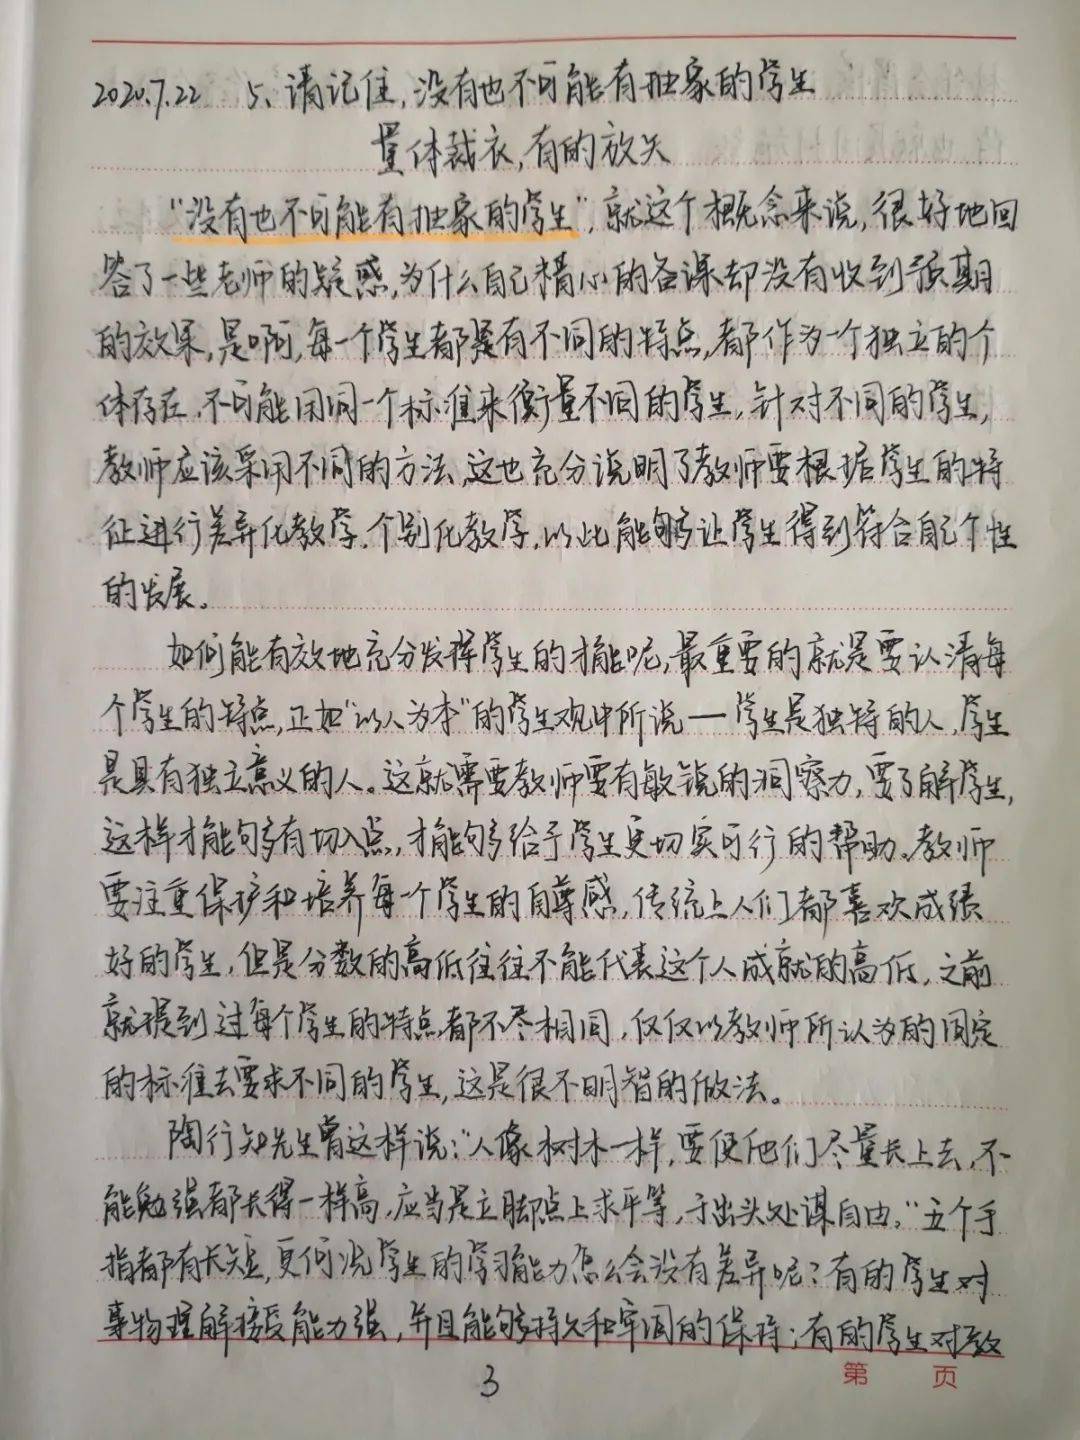 2020.7.22 5、请记住,没有也不可能有抽象的学生
量体裁衣,有的放矢
“没有也不可能有抽象的学生”,就这个概念来说,很好地回
答了一些老师的疑惑,为什么自己精心的备课却没有收到预期
的效果,是啊,每一个学生都是有不同的特点,都作为一个独立的个
体存在,不可能用同一个标准来衡量不同的学生,针对不同的学生,
教师应该采用不同的方法,这也充分说明了教师要根据学生的特
征进行差异化教学、个别化教学,以此能够让学生得到符合自己个性
的发展。
如何能有效地充分发挥学生的才能呢,最重要的就是要认清每
个学生的特点,正如“以人为本”的学生观中所说——学生是独特的人,学生
是具有独立意义的人。这就需要教师要有敏锐的洞察力,要了解学生,
这样才能够有切入点,才能够给予学生更切实可行的帮助。教师
要注重保护和培养每一个学生的自尊感,传统上人们都喜欢成绩
好的学生,但是分数的高低往往不能代表这个人成就的高低,之前
就提到过每个学生的特点都不尽相同,仅仅以教师所认为的固定
的标准去要求不同的学生,这是很不明智的做法。
陶行知先生曾这样说:“人像树木一样,要使他们尽量长上去,不
能勉强都长得一样高,应当是立脚点上求平等,于出头处谋自由。”五个手
指都有长短,更何况学生的学习能力怎么会没有差异呢?有的学生对
事物理解接受能力强,并且能够持久和牢固的保持;有的学生对教
3
第 页